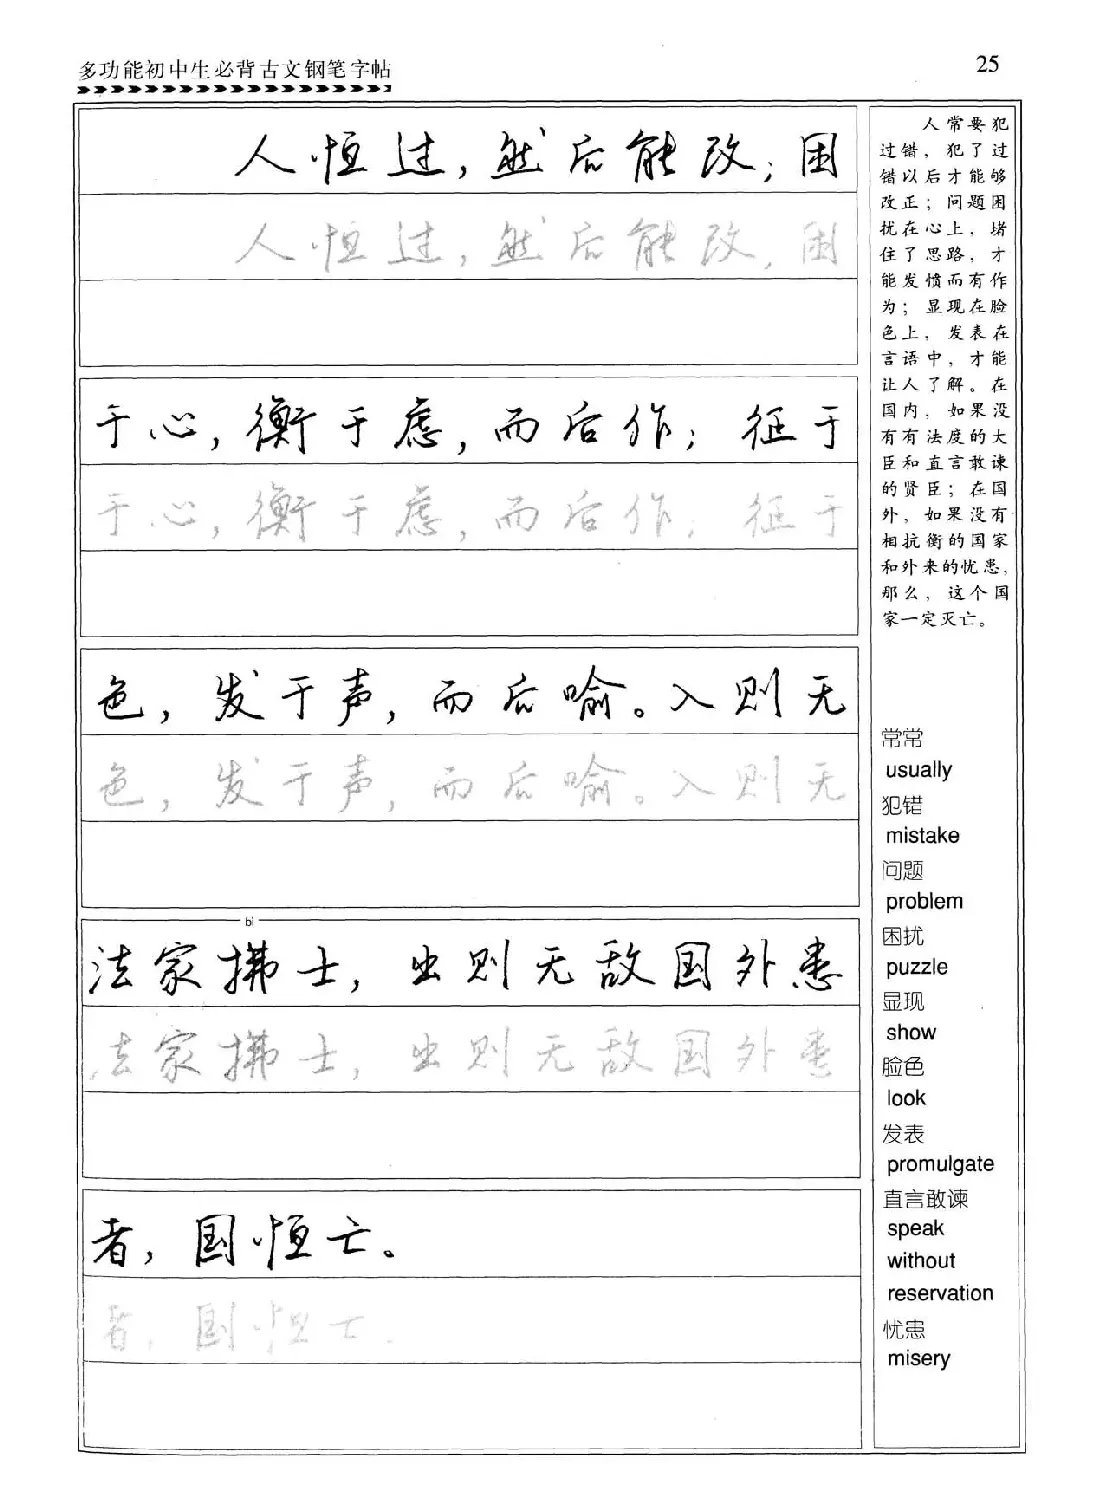 多功能初中生必背古文钢笔字帖
25
人恒过，然后能改；困
人恒过，然后能改；困
于心，衡于虑，而后作；征于
于心，衡于虑，而后作；征于
色，发于声，而后喻。入则无
色，发于声，而后喻。入则无
bì
法家拂士，出则无敌国外患
法家拂士，出则无敌国外患
者，国恒亡。
者，国恒亡。
人常要犯
过错，犯了过
错以后才能够
改正；问题困
扰在心上，堵
住了思路，才
能发愤而有作
为；显现在脸
色上，发表在
言语中，才能
让人了解。在
国内，如果没
有有法度的大
臣和直言敢谏
的贤臣；在国
外，如果没有
相抗衡的国家
和外来的忧患，
那么，这个国
家一定灭亡。
常常
usually
犯错
mistake
问题
problem
困扰
puzzle
显现
show
脸色
look
发表
promulgate
直言敢谏
speak
without
reservation
忧患
misery